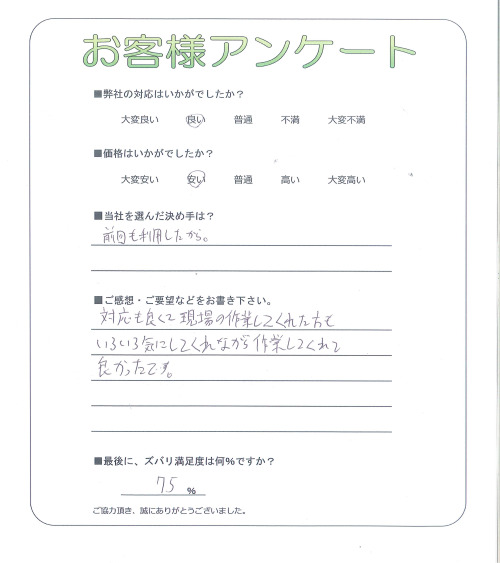 お客様アンケート
■弊社の対応はいかがでしたか?
大変良い 良い 普通 不満 大変不満
■価格はいかがでしたか?
大変安い 安い 普通 高い 大変高い
■当社を選んだ決め手は?
前回も利用したから。
■ご感想・ご要望などをお書き下さい。
対応も良くて現場の作業してくれた方も
いろいろ気にしてくれながら作業してくれて
良かったです。
■最後に、ズバリ満足度は何%ですか?
75 %
ご協力頂き、誠にありがとうございました。